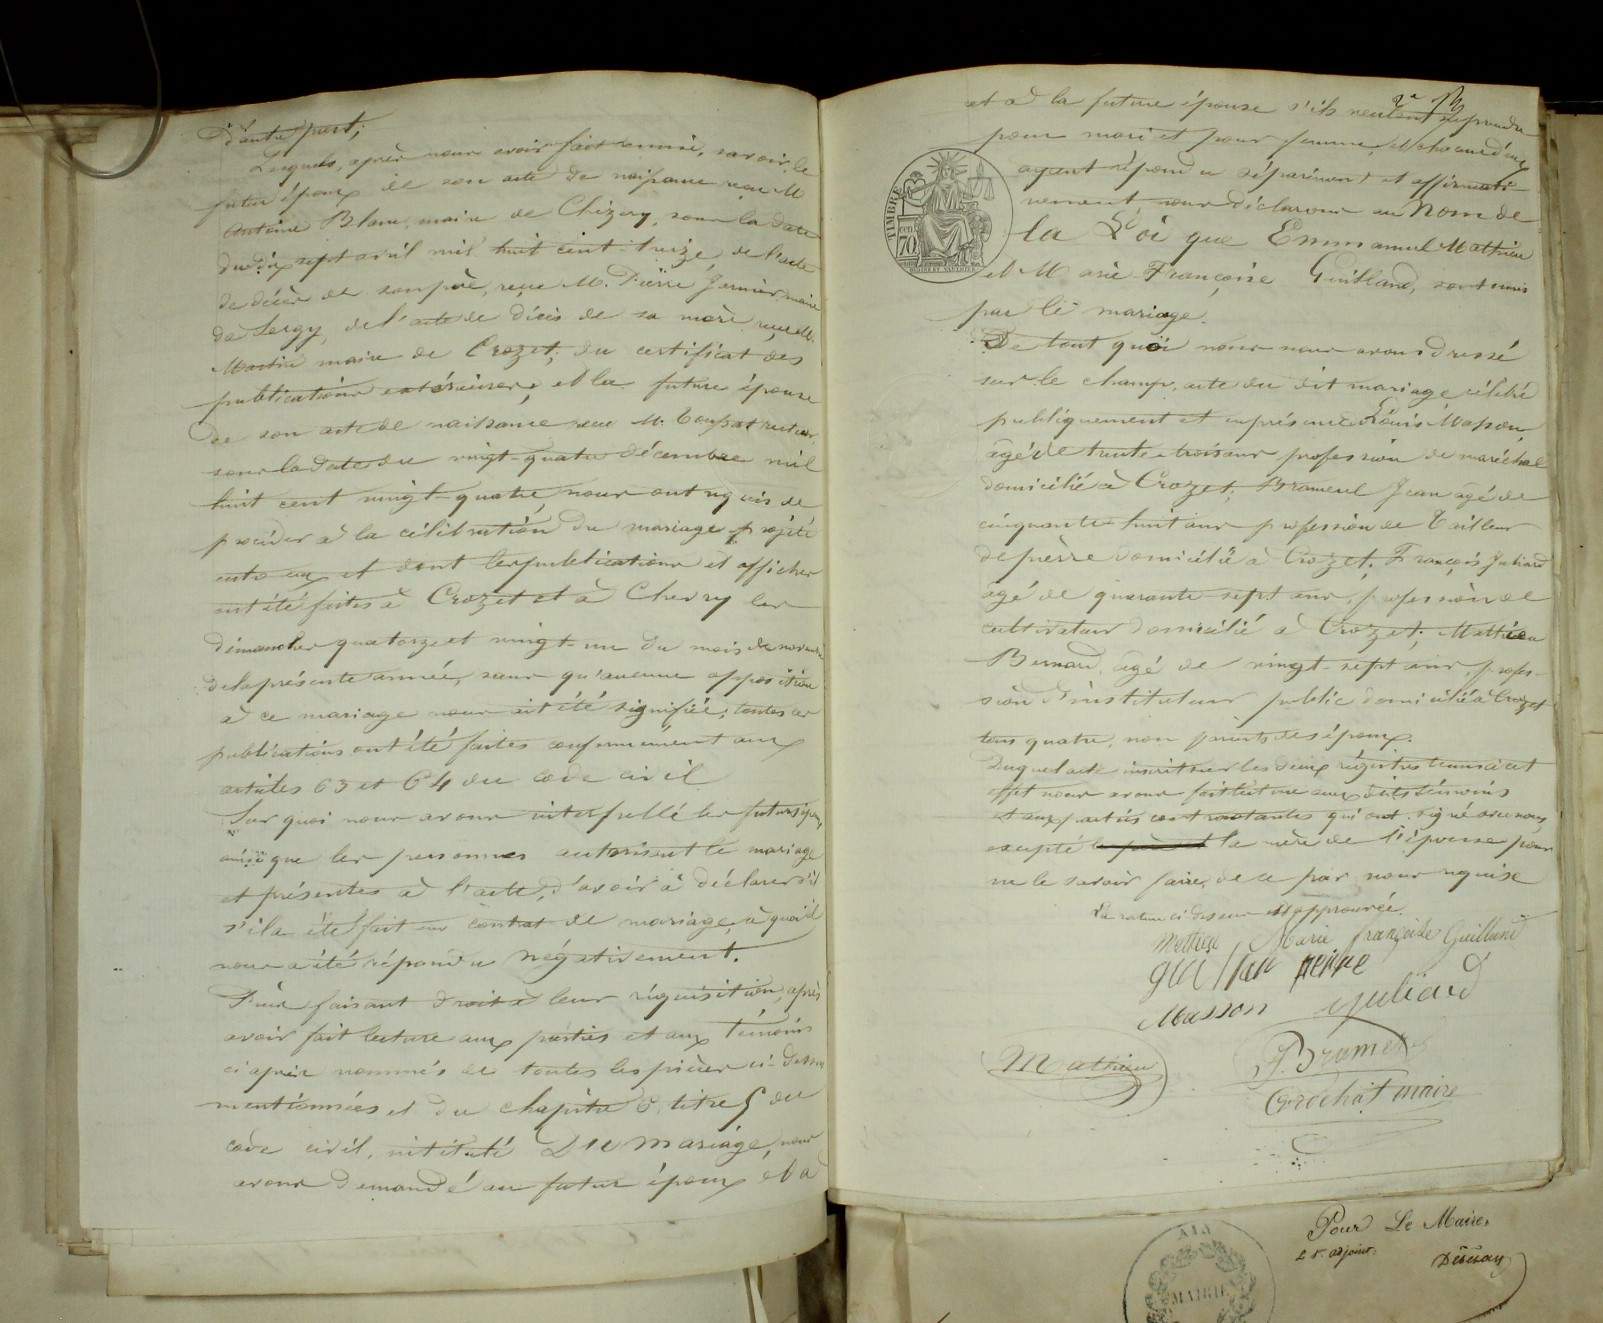 d'autre part;
Lesquels, après nous avoir fait remis, savoir, le
futur époux de son acte de naissance reçu M
Antoine Blanc, maire de Chézery, sous la date
du dix sept avril mil huit cent treize, de l'acte
de décès de son père, reçu M. Pierre Jernier, maire
de Sergy, de l'acte de décès de sa mère reçu M.
Martin maire de Crozet; du certificat des
publications extérieures, et la future épouse
de son acte de naissance reçu M. recteur,
sous la date du vingt-quatre décembre mil
huit cent vingt-quatre, nous ont requis de
procéder à la célébration du mariage projeté
entre eux et dont les publications et affiches
ont été faites à Crozet et à Chevry les
dimanches quatorze et vingt-un du mois de novembre
de la présente année, sans qu'aucune opposition
à ce mariage nous ait été signifiée; toutes ces
publications ont été faites conformément aux
articles 63 et 64 du code civil
Sur quoi nous avons interpellé les futurs époux,
ainsi que les personnes autorisant le mariage
et présentes à l'acte, d'avoir à déclarer s'il
s'il a été fait un contrat de mariage, à quoi il
nous a été répondu négativement.
Puis faisant droit à leur réquisition, après
avoir fait lecture aux parties et aux témoins
ci après nommés de toutes les pièces ci-dessus
mentionnées et du chapitre 6, titre 5 du
code civil, intitulé Du Mariage, nous
avons demandé au futur époux et à
et à la future épouse s'ils veulent se prendre
pour mari et pour femme, et chacun d'eux
ayant répondu séparément et affirmati-
vement nous déclarons au Nom de
la Loi que Emmanuel Mathieu
et Marie Françoise Guilland, sont unis
par le mariage.
De tout quoi nous nous avons dressé
sur le champ, acte du dit mariage célébré
publiquement et en présence de Louis Masson,
âgé de trente-trois ans profession de maréchal
domicilié à Crozet, Bramerel Jean âgé de
cinquante huit ans profession de Tailleur
de pierre domicilié à Crozet, François Juliard
âgé de quarante sept ans, profession de
cultivateur domicilié à Crozet; Mathieu
Bernard, âgé de vingt-sept ans, profes-
sion d'instituteur public domicilié à Crozet
tous quatre, non parents des époux.
Duquel acte inscrit sur les deux régistres tenus à cet
effet nous avons fait lecture aux dits témoins
et aux parties contractantes qui ont signé avec nous,
excepté la mère de l'épouse pour
ne le savoir faire, de ce par nous requise
La rature ci dessus est approuvée.
mathieu Marie françoise Guilland
pierre
Masson Juliard
Mathieu J. Bramerel
Grochat maire
TIMBRE
70
AIN
MAIRIE
Pour Le Maire,
L'adjoint: